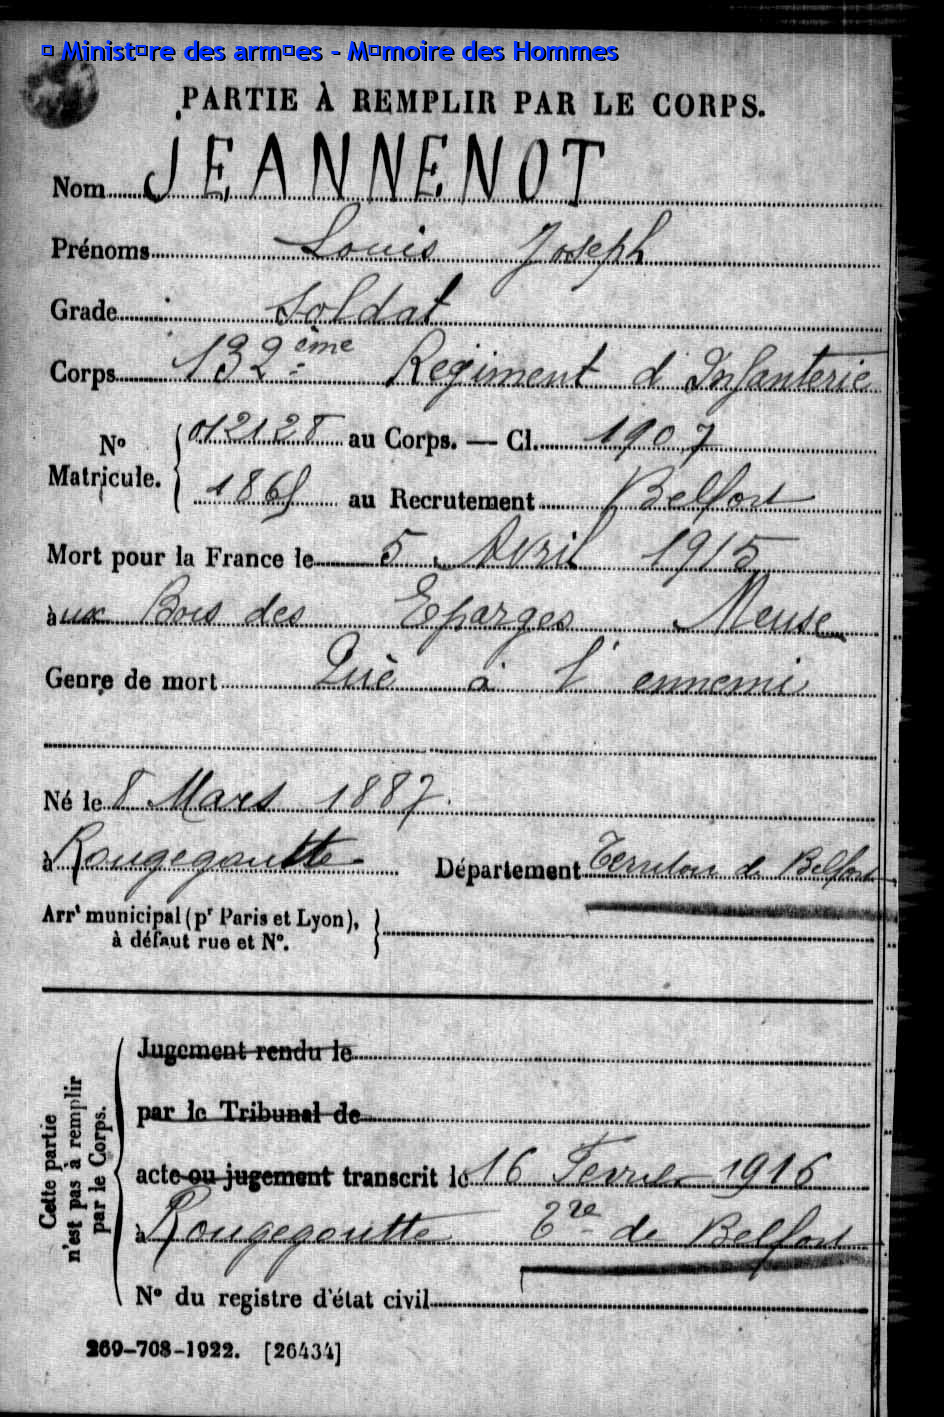 ▯ Minist▯re des arm▯es - M▯moire des Hommes
PARTIE À REMPLIR PAR LE CORPS.
Nom JEANNENOT
Prénoms Louis Joseph
Grade Soldat
Corps 132ème Régiment d'Infanterie
N° Matricule. { 012128 au Corps. — Cl. 1907
1865 au Recrutement Belfort
Mort pour la France le 5 Avril 1915
à ux Bois des Eparges Meuse
Genre de mort Tué à l'ennemi
Né le 8 Mars 1887.
à Rougegoutte Département Territoire de Belfort
Arrt municipal (pr Paris et Lyon),
à défaut rue et N°.
Cette partie n'est pas à remplir par le Corps.
Jugement rendu le
par le Tribunal de
acte ou jugement transcrit le 16 Fevrier 1916
à Rougegoutte Tre de Belfort
N° du registre d'état civil
269-708-1922. [26434]